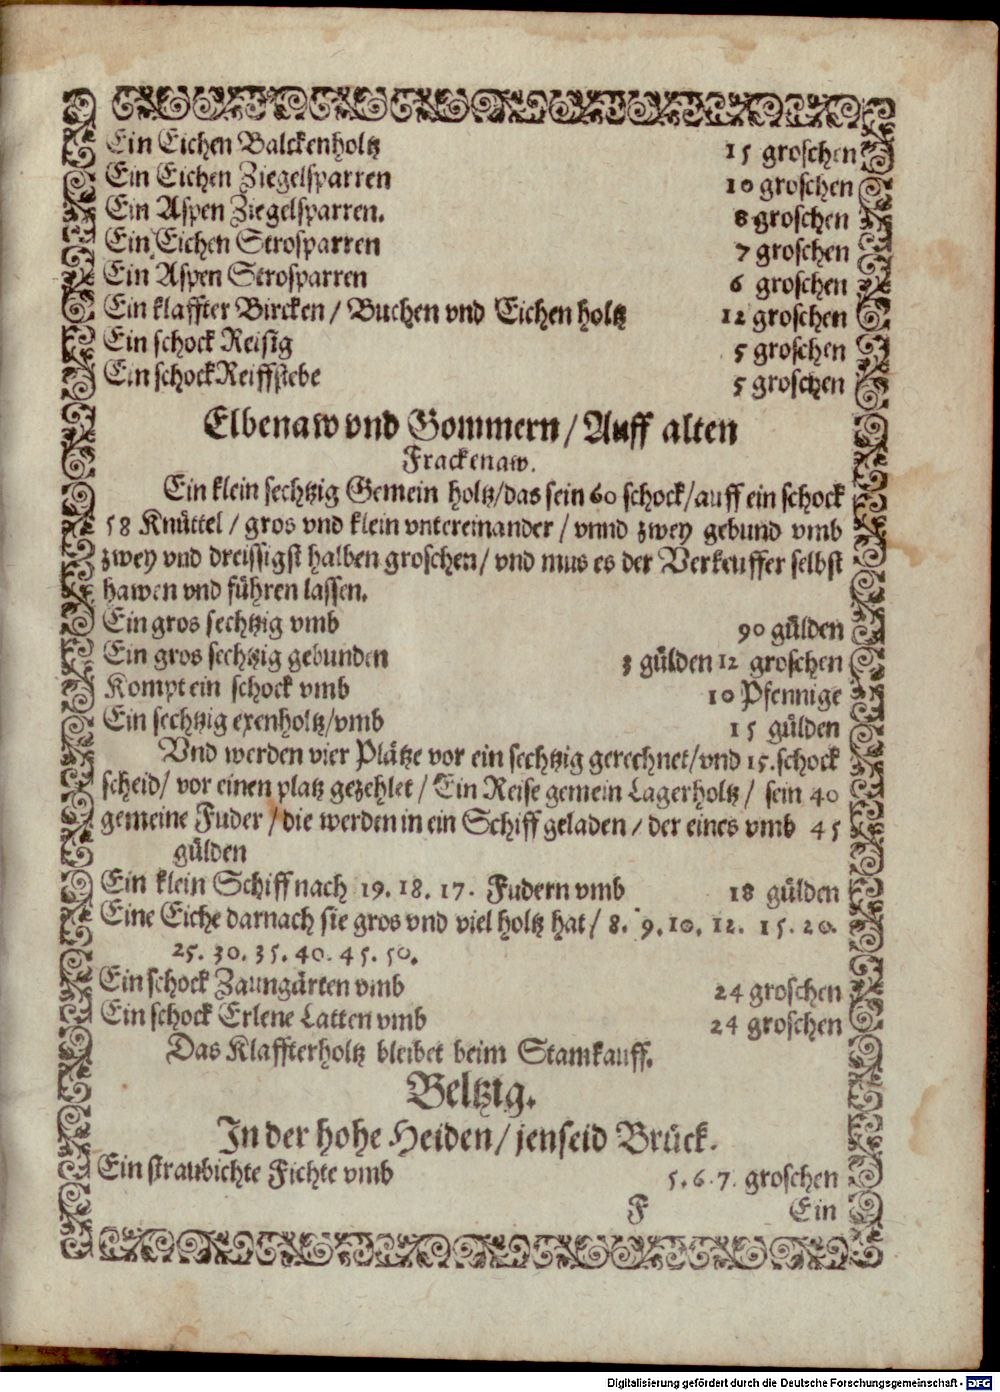 Ein Eichen Balckenholtz 15 groschen
Ein Eichen Ziegelsparren 10 groschen
Ein Aspen Ziegelsparren. 8 groschen
Ein Eichen Strosparren 7 groschen
Ein Aspen Strosparren 6 groschen
Ein klaffter Bircken / Buchen vnd Eichen holtz 12 groschen
Ein schock Reisig 5 groschen
Ein schock Reiffstebe 5 groschen
Elbenaw vnd Gommern / Auff alten
Frackenaw.
Ein klein sechtzig Gemein holtz / das sein 60 schock / auff ein schock
58 Knüttel / gros vnd klein vntereinander / vnnd zwey gebund vmb
zwey vnd dreissigst halben groschen / vnd mus es der Verkeuffer selbst
hawen vnd führen lassen.
Ein gros sechtzig vmb 90 gülden
Ein gros sechtzig gebunden 3 gülden 12 groschen
Kompt ein schock vmb 10 Pfennige
Ein sechtzig exenholtz / vmb 15 gülden
Vnd werden vier Plätze vor ein sechtzig gerechnet / vnd 15. schock
scheid / vor einen platz gezehlet / Ein Reise gemein Lagerholtz / sein 40
gemeine Fuder / die werden in ein Schiff geladen / der eines vmb 45
gülden
Ein klein Schiff nach 19. 18. 17. Fudern vmb 18 gülden
Eine Eiche darnach sie gros vnd viel holtz hat / 8. 9. 10. 12. 15. 20.
25. 30. 35. 40. 45. 50.
Ein schock Zaungärten vmb 24 groschen
Ein schock Erlene Latten vmb 24 groschen
Das Klaffterholtz bleibet beim Stamkauff.
Beltzig.
In der hohe Heiden / jenseid Brück.
Ein straubichte Fichte vmb 5. 6. 7. groschen
F Ein
Digitalisierung gefördert durch die Deutsche Forschungsgemeinschaft - DFG